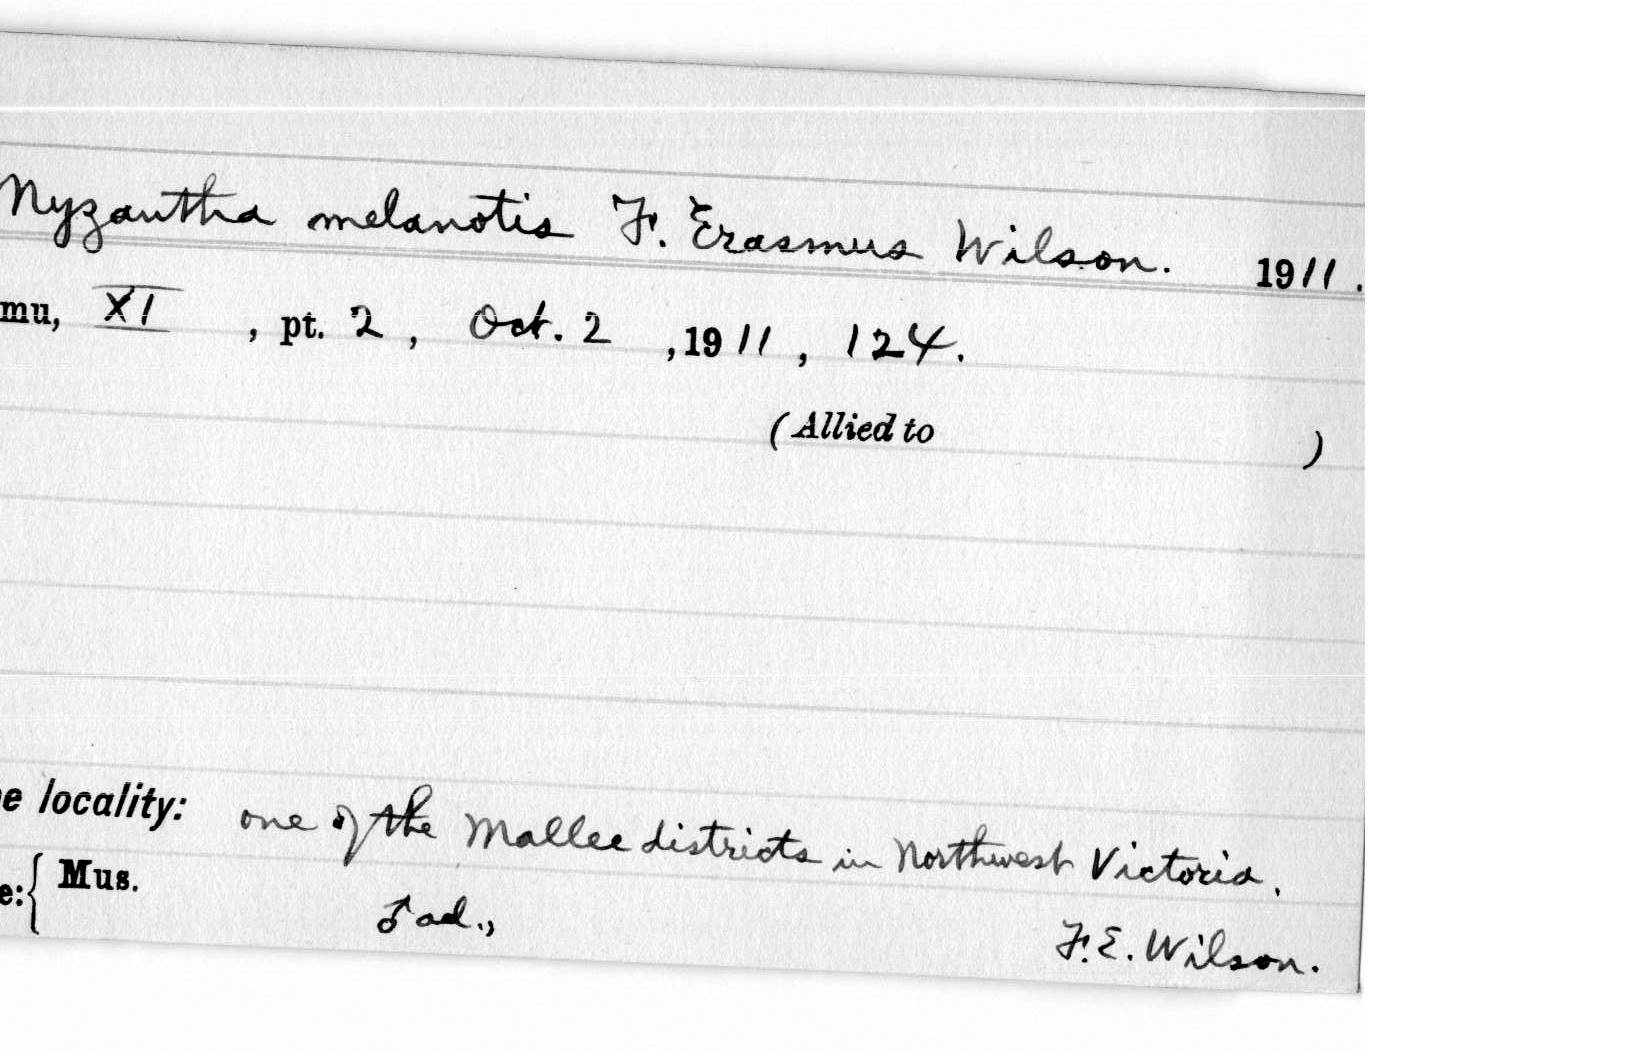 Myzantha melanotis F. Erasmus Wilson. 1911.
mu, XI , pt. 2 , Oct. 2 , 1911 , 124.
(Allied to )
e locality: one of the Mallee districts in Northwest Victoria.
e:{ Mus. ♂ ad., F. E. Wilson.